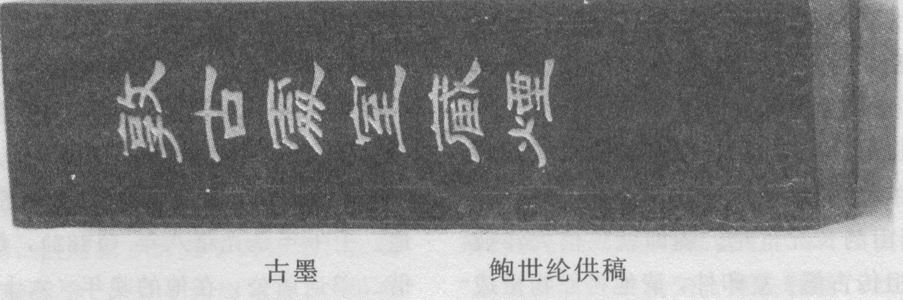 敦古室藏煙
古墨
鲍世纶供稿